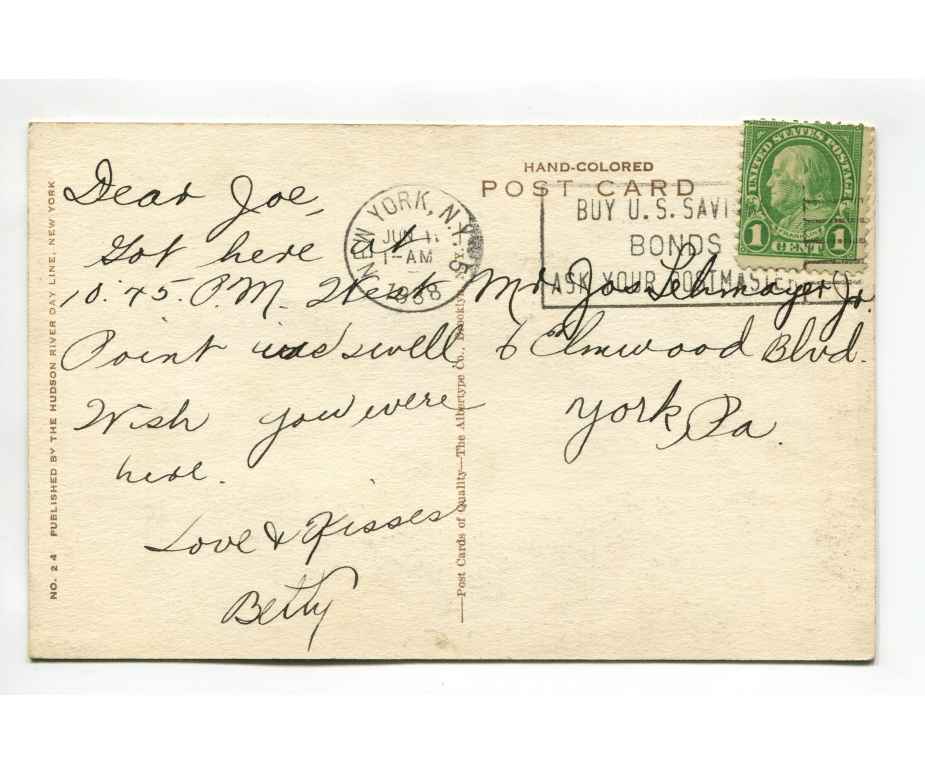 NO. 24 PUBLISHED BY THE HUDSON RIVER DAY LINE, NEW YORK
Dear Joe,
Got here at
10:45. P.M. West
Point was swell.
Wish you were
here.
Love & Kisses
Betty
—Post Cards of Quality—The Albertype Co., Brooklyn, N.Y.
HAND-COLORED
POST CARD
NEW YORK, N.Y.
JUN 11
1-AM
1938
5
BUY U.S. SAVI
BONDS
ASK YOUR POSTMASTER
UNITED STATES POSTAGE
FRANKLIN
1 CENT 1
Mr Jos Lehmayer Jr.
6 Elmwood Blvd.
York, Pa.